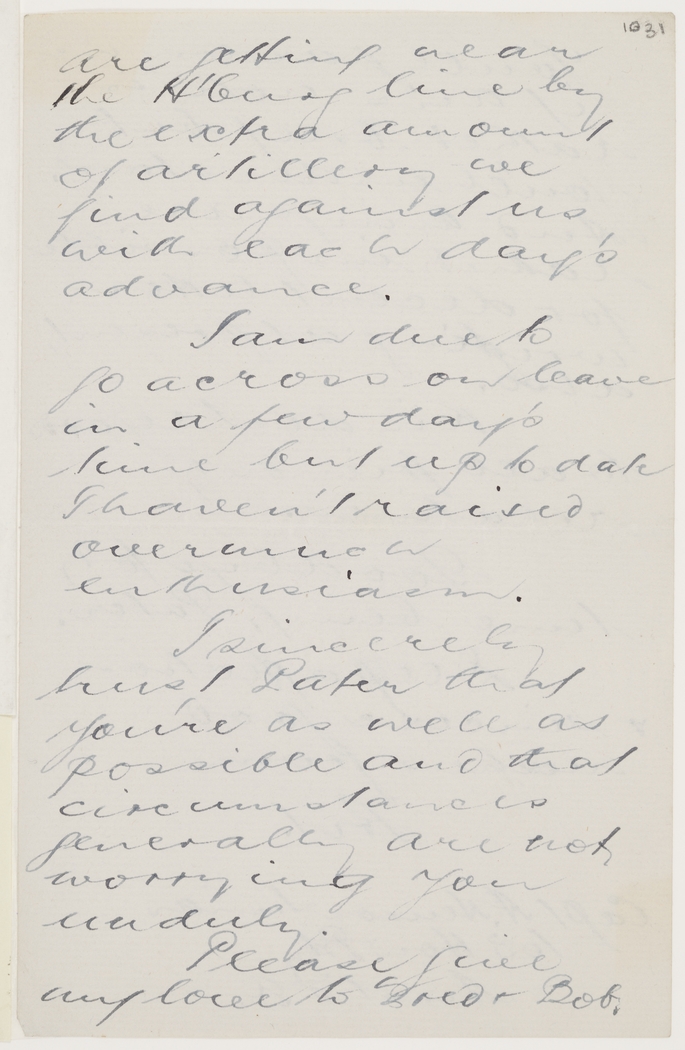 1031
are getting near
the H'burg line by
the extra amount
of artillery we
find against us
with each day's
advance.
I am due to
go across on leave
in a few day's
time but up to date
I haven't raised
overmuch
enthusiasm.
I sincerely
trust Pater that
you're as well as
possible and that
circumstances
generally are not
worrying you
unduly.
Please give
my love to & Bob.